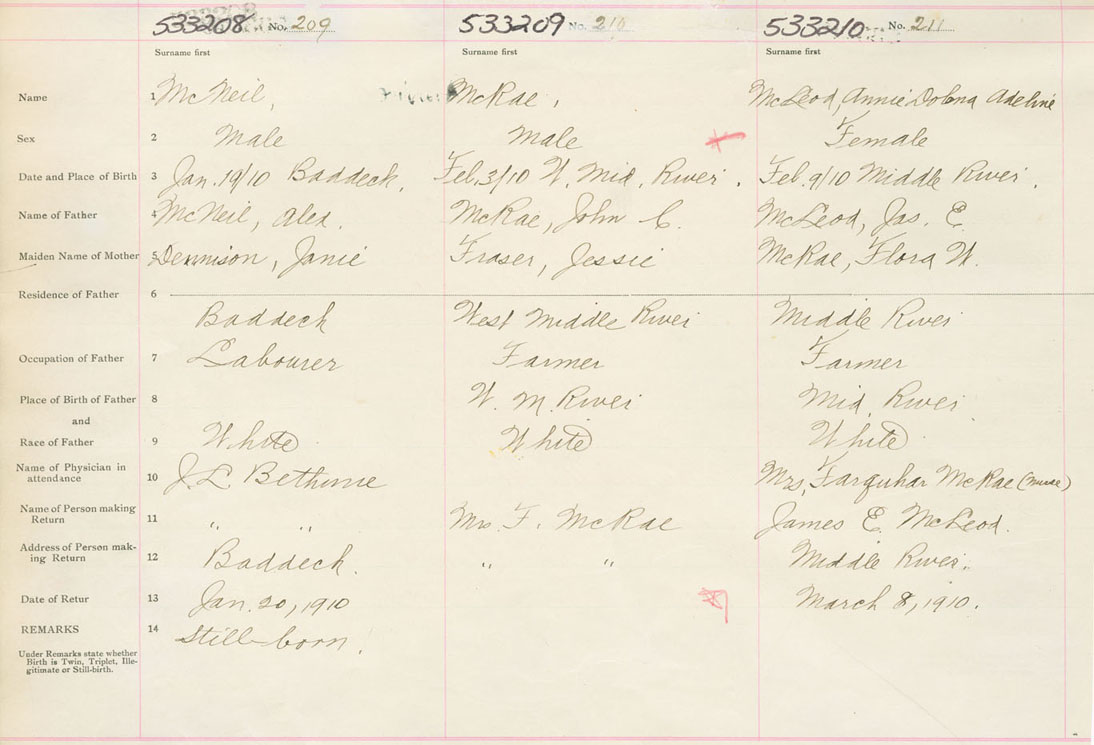 533208 No. 209 533209 No. 210 533210 No. 211
Surname first Surname first Surname first
Name 1 McNeil, McRae, McLeod, Annie Dolena Adeline
Sex 2 Male Male Female
Date and Place of Birth 3 Jan. 19/10 Baddeck. Feb. 3/10 W. Mid. River. Feb. 9/10 Middle River.
Name of Father 4 McNeil, Alex. McRae, John C. McLeod, Jas. E.
Maiden Name of Mother 5 Dennison, Janie Fraser, Jessie McRae, Flora W.
Residence of Father 6
Baddeck West Middle River Middle River
Occupation of Father 7 Labourer Farmer Farmer
Place of Birth of Father 8 W. M. River Mid. River
and
Race of Father 9 White White White
Name of Physician in
attendance 10 J. L. Bethune Mrs. Farquhar McRae (nurse)
Name of Person making
Return 11 " " Mrs. F. McRae James E. McLeod.
Address of Person mak-
ing Return 12 Baddeck. " " Middle River.
Date of Retur 13 Jan. 20, 1910 March 8, 1910.
REMARKS 14 Still-born.
Under Remarks state whether
Birth is Twin, Triplet, Ille-
gitimate or Still-birth.